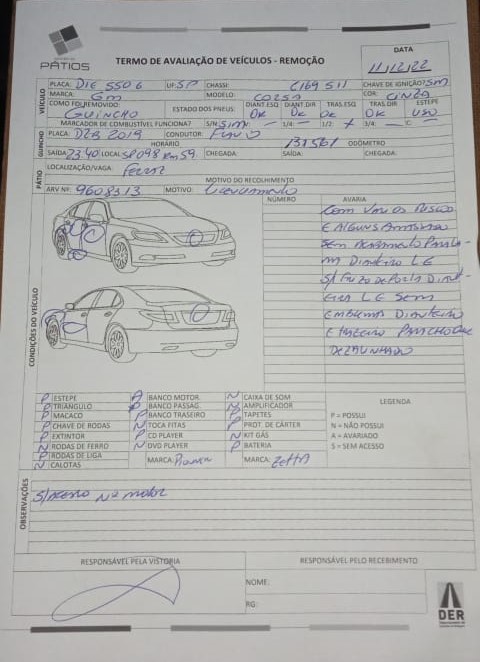 PÁTIOS
TERMO DE AVALIAÇÃO DE VEÍCULOS - REMOÇÃO
DATA
11/12/22
VEÍCULO
PLACA: DIE 5506 UF: SP CHASSI: C169511 CHAVE DE IGNIÇÃO? SIM
MARCA: GM MODELO: CORSA COR: CINZA
COMO FOI REMOVIDO: GUINCHO ESTADO DOS PNEUS: DIANT.ESQ OK DIANT.DIR OK TRAS.ESQ OK TRAS.DIR OK ESTEPE USO
MARCADOR DE COMBUSTÍVEL FUNCIONA? S/N: SIM 1/4: 1/2: 3/4: C:
GUINCHO
PLACA: 2019 CONDUTOR:
HORÁRIO 137561 ODÔMETRO
SAÍDA: 23:40 LOCAL: SP098 Km 59 CHEGADA: SAÍDA: CHEGADA:
PÁTIO
LOCALIZAÇÃO/VAGA: Ferraz
MOTIVO DO RECOLHIMENTO
ARV Nº: 9608313 MOTIVO: Licenciamento
CONDIÇÕES DO VEÍCULO
NÚMERO AVARIA
Com Varios Riscos
E Alguns Amassado
Sem Acabamento Parala-
ma Dianteiro L E
S/ Frizo de Porta Diant-
eira L E Sem
Emblema Dianteiro
E Traseiro Parachoque
Dezalinhado
P ESTEPE A BANCO MOTOR. N CAIXA DE SOM LEGENDA
P TRIÂNGULO BANCO PASSAG. N AMPLIFICADOR
P MACACO P BANCO TRASEIRO P TAPETES P = POSSUI
P CHAVE DE RODAS N TOCA FITAS P PROT. DE CÁRTER N = NÃO POSSUI
P EXTINTOR P CD PLAYER N KIT GÁS A = AVARIADO
N RODAS DE FERRO N DVD PLAYER P BATERIA S = SEM ACESSO
P RODAS DE LIGA MARCA: Pioneer MARCA: Zetta
N CALOTAS
OBSERVAÇÕES
S/ acesso no motor
RESPONSÁVEL PELA VISTORIA RESPONSÁVEL PELO RECEBIMENTO
NOME:
RG:
DER